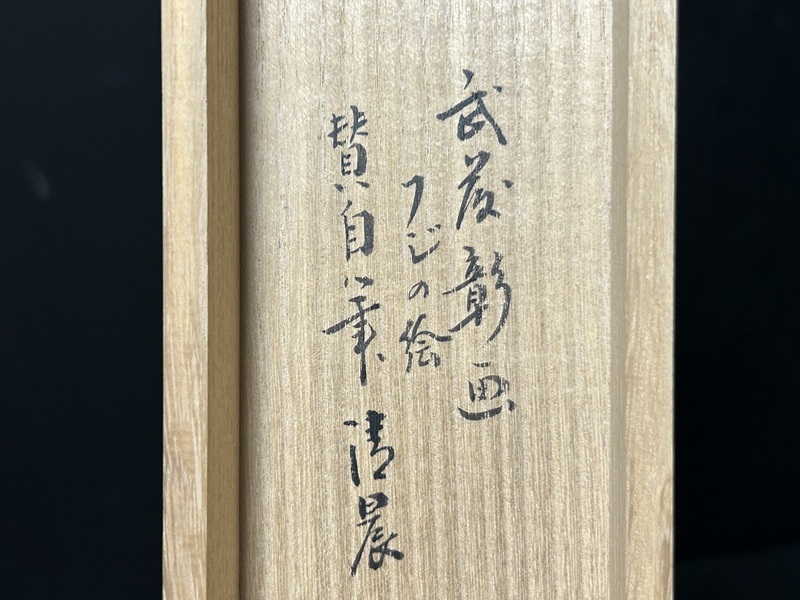 武蔵彰画
フジの絵
賛自筆 清晨